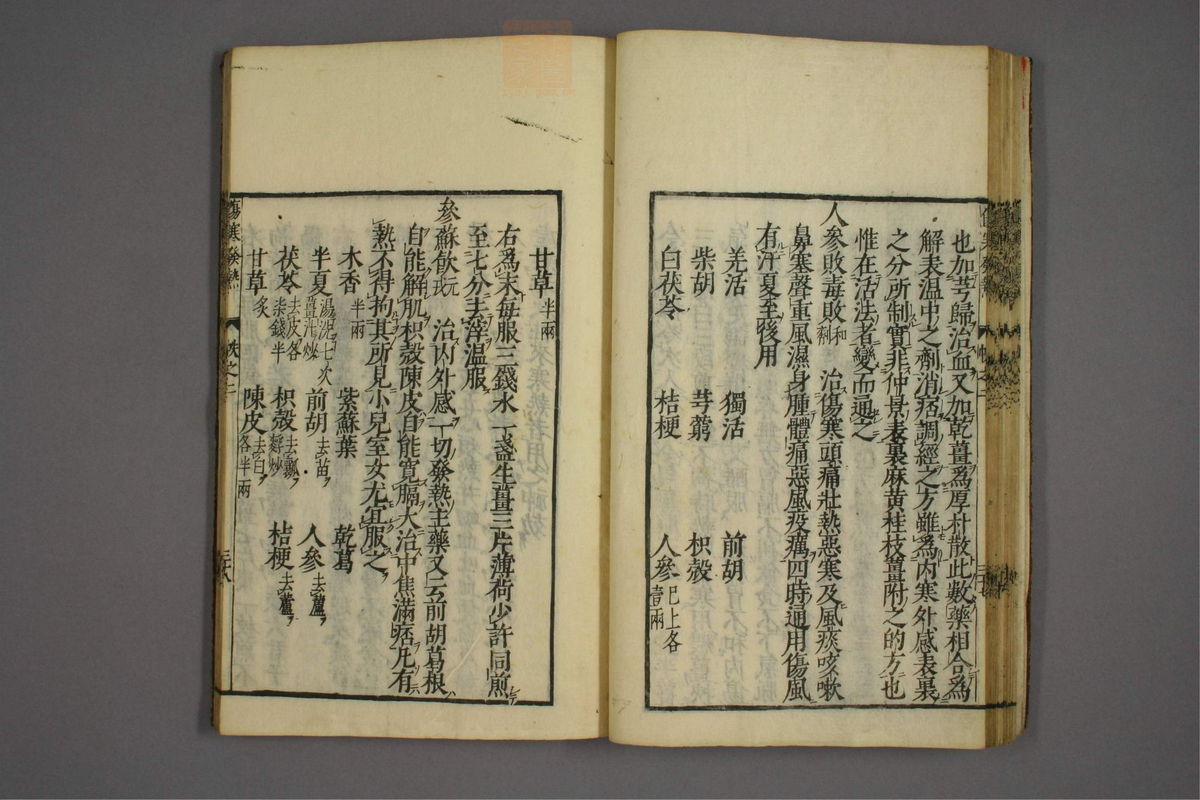 也加芎歸治血又加乾薑爲厚朴散此數藥相合爲
解表温中之劑消痞調經之方雖爲内寒外感表裏
之分所制實非仲景表裏麻黄桂枝薑附之的方也
惟在活法者變而通之
人參敗毒散和劑 治傷寒頭痛壯熱惡寒及風痰咳嗽
鼻塞聲重風濕身腫體痛惡風疫癘四時通用傷風
有汗夏至後用
羌活 獨活 前胡
柴胡 芎藭 枳殻
白茯苓 桔梗 人參已上各壹兩
甘草半兩
右爲末每服三錢水一盞生薑三片薄荷少許同煎
至七分去滓温服
參蘇飲元 治内外感一切發熱主藥又云前胡葛根
自能解肌枳殻陳皮自能寛膈大治中焦滿痞凡有
熱不得拘其所見小兒室女尤宜服之
木香半兩 紫蘇葉 乾葛
半夏湯洗七次薑汁炒 前胡去苗 人參去蘆
茯苓去皮各柒錢半 枳殻去瓤麩炒 桔梗去蘆
甘草炙 陳皮去白各半兩
傷寒發熱 帙之二